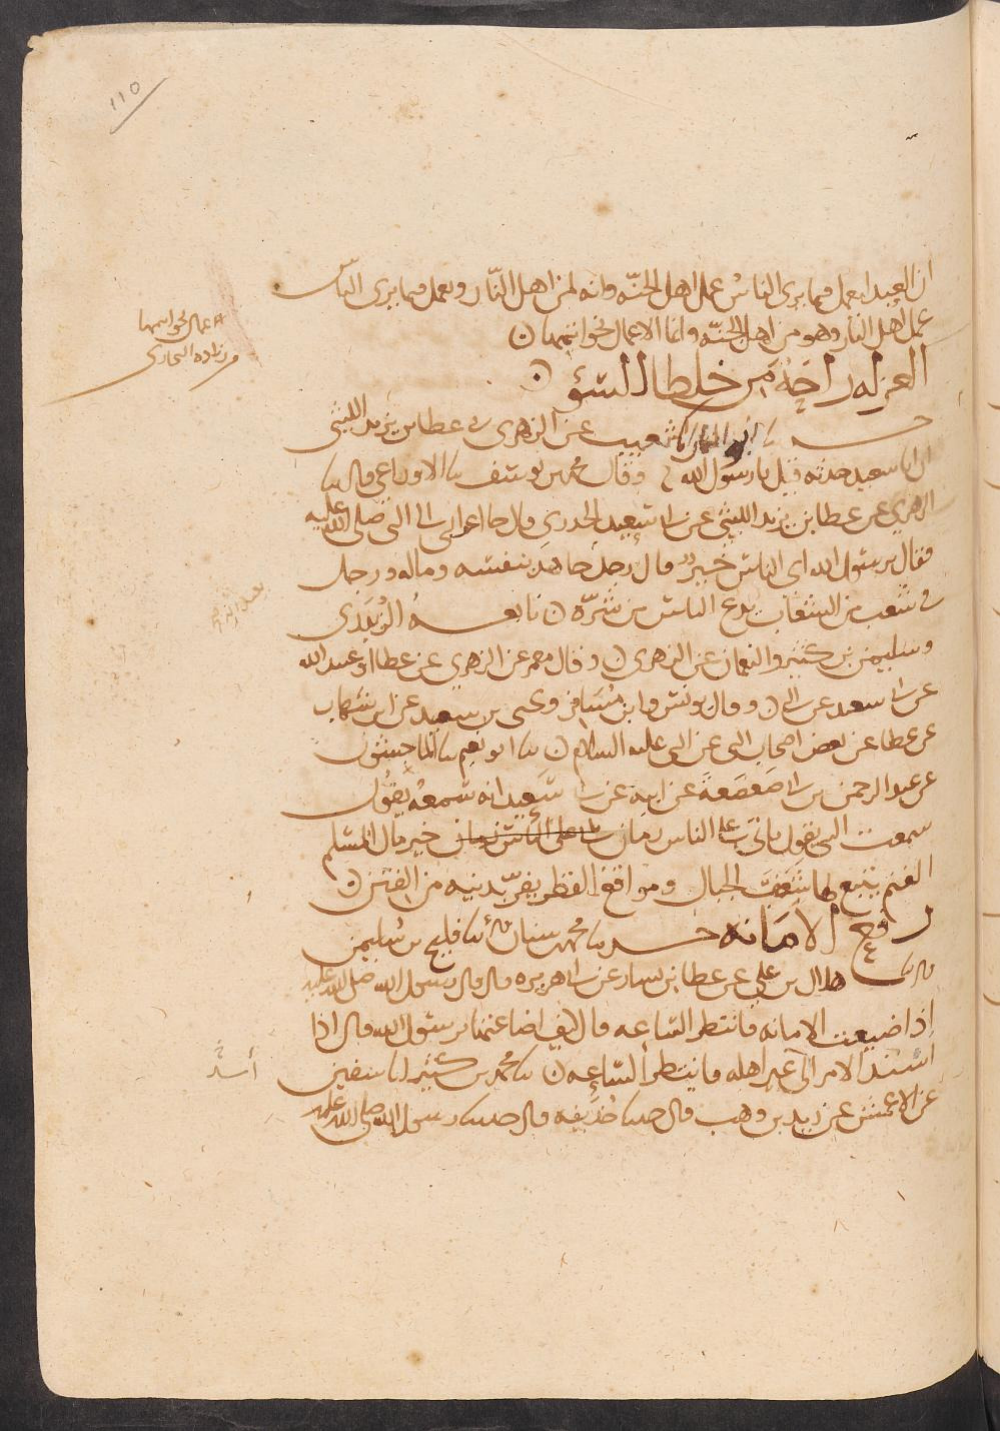 ١١٥
ان العبد ليعمل فيما يرى الناس عمل اهل الجنّه وانه لمن اهل النّار ويعمل فيما يرى الناس
عمل اهل النار وهو من اهل الجنّه وانما الاعمال بخواتيمها ن
العزله راحه من خلطا السّوء ن
حدثنا ابو اليمان انا شعيب عن الزهرى نى عطا بن يزيد الليثى
ان ابا سعيد حدثه قيل يا رسول الله وقال محمد بن يوسف نا الاوزاعى قال نا
الزهرى عن عطا بن يزيد الليثى عن ابى سعيد الخدرى قال جا اعرابى الى النبى صلى الله عليه
فقال يرسول الله اى الناس خيرٌ قال رجل جاهد بنفسه وماله ورجل
فى شعب من الشعاب يدع الناس من شرّه ن تابعه الزُبَيدى
وسليمن بن كثير والنعمان عن الزهرى ن وقال معمر عن الزهرى عن عطا او عبيد الله
عن ابى سعيد عن النبى ن وقال يونس وابن مُسَافر ويحيى بن سعيد عن ابن شهاب
عن عطا عن بعض اصحاب النبى عن النبى عليه السلام ن نا ابو نعيم نا الماجشون
عن عبد الرحمن بن ابى صَعصَعةَ عن ابيه عن ابى سَعيد انه سمعه يقُول
سمعت النبى يقول ياتى على الناس زمان خير مال المسلم
الغنم يتبع بها شعَفَ الجبال ومواقع القطر يفرّ بدينه من الفتن ن
رفع الامَانه حدثنا محمد بن سنان نا فليح بن سُليمن
قال نا هلال بن على عن عطا بن يسار عن ابى هريره قال قال رسول الله صلى الله عليه
إذا ضيعت الامانه فانتظر السّاعه قال كيف اضاعتها يرسول الله قال اذا
اسند الامر الى غير اهله فانتظر السّاعه ن نا محمد بن كثير انا سفين
عن الاعمش عن زيد بن وهب قال حدثنا حُذَيفه قال حدثنا رسول الله صلى الله عليه
الاعمال بخواتيمها
من زاده البخارى